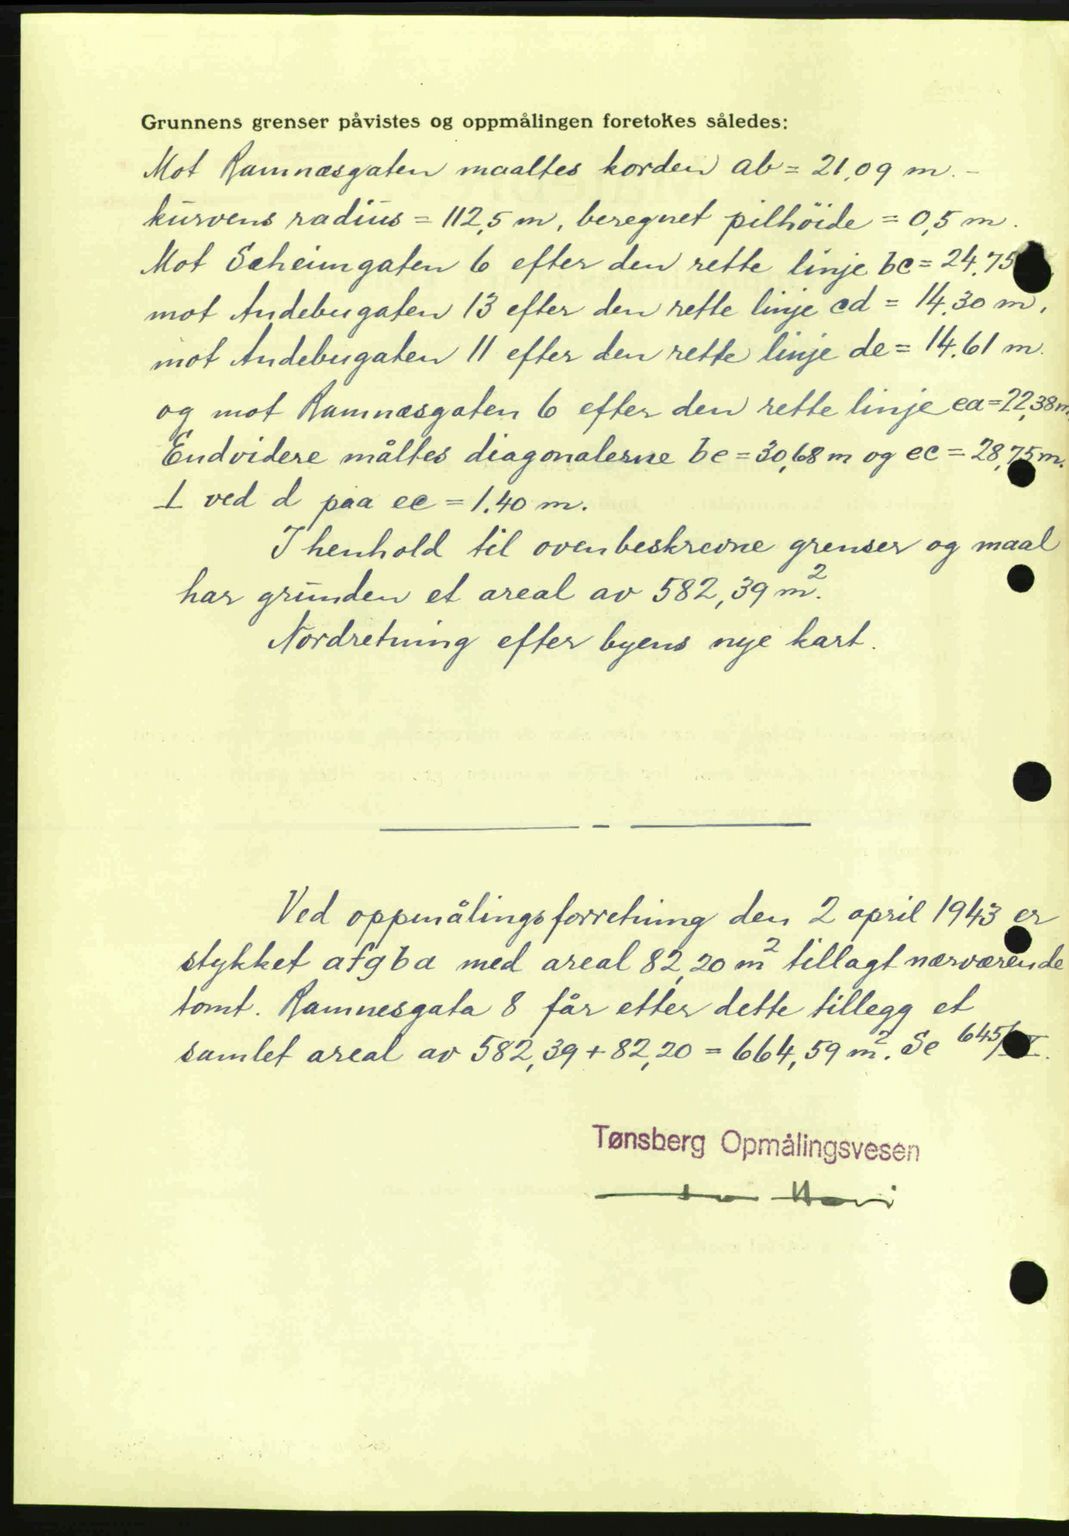 Grunnens grenser påvistes og oppmålingen foretokes således:
Mot Ramnæsgaten maaltes korden ab = 21,09 m. -
kurvens radius = 112,5 m, beregnet pilhöide = 0,5 m.
Mot Scheimgaten 6 efter den rette linje bc = 24,75
mot Andebugaten 13 efter den rette linje cd = 14,30 m,
mot Andebugaten 11 efter den rette linje de = 14,61 m.
og mot Ramnæsgaten 6 efter den rette linje ea = 22,38 m.
Endvidere måltes diagonalerne be = 30,68 m og ec = 28,75 m.
⊥ ved d paa ec = 1.40 m.
I henhold til ovenbeskrevne grenser og maal
har grunden et areal av 582,39 m².
Nordretning efter byens nye kart.
Ved oppmålingsforretning den 2 april 1943 er
stykket afgba med areal 82,20 m² tillagt nærværende
tomt. Ramnesgata 8 får etter dette tillegg et
samlet areal av 582,39 + 82,20 = 664,59 m². Se 645/
Tønsberg Opmålingsvesen